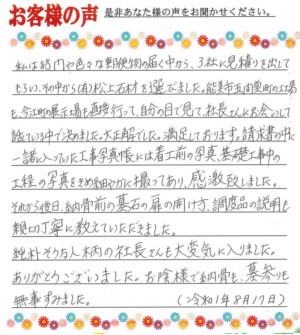 お客様の声 是非あなた様の声をお聞かせください。
私は 円や色々な郵便物の届く中から、3社に見積りを出して
もらい、その中から(有)松工石材を選びました。能美市五間堂町の工場
も、今江町の展示場も直接行って、自分の目で見て、社長さんにお会いして
話していく中で決めました。大正解でした。満足しております。請求書の中
に一諸に入っていた工事写真帳には着工前の写真、基礎工事中の
工程の写真をきめ細やかに撮ってあり、感激致しました。
それから後日、納骨前の墓石の扉の開け方、調度品の説明も
親切丁寧に教えていただきました。
純朴そうな人柄の社長さんも大変気に入りました。
ありがとうございました。お陰様で納骨も、墓参も
無事すみました。 (令和1年8月17日)